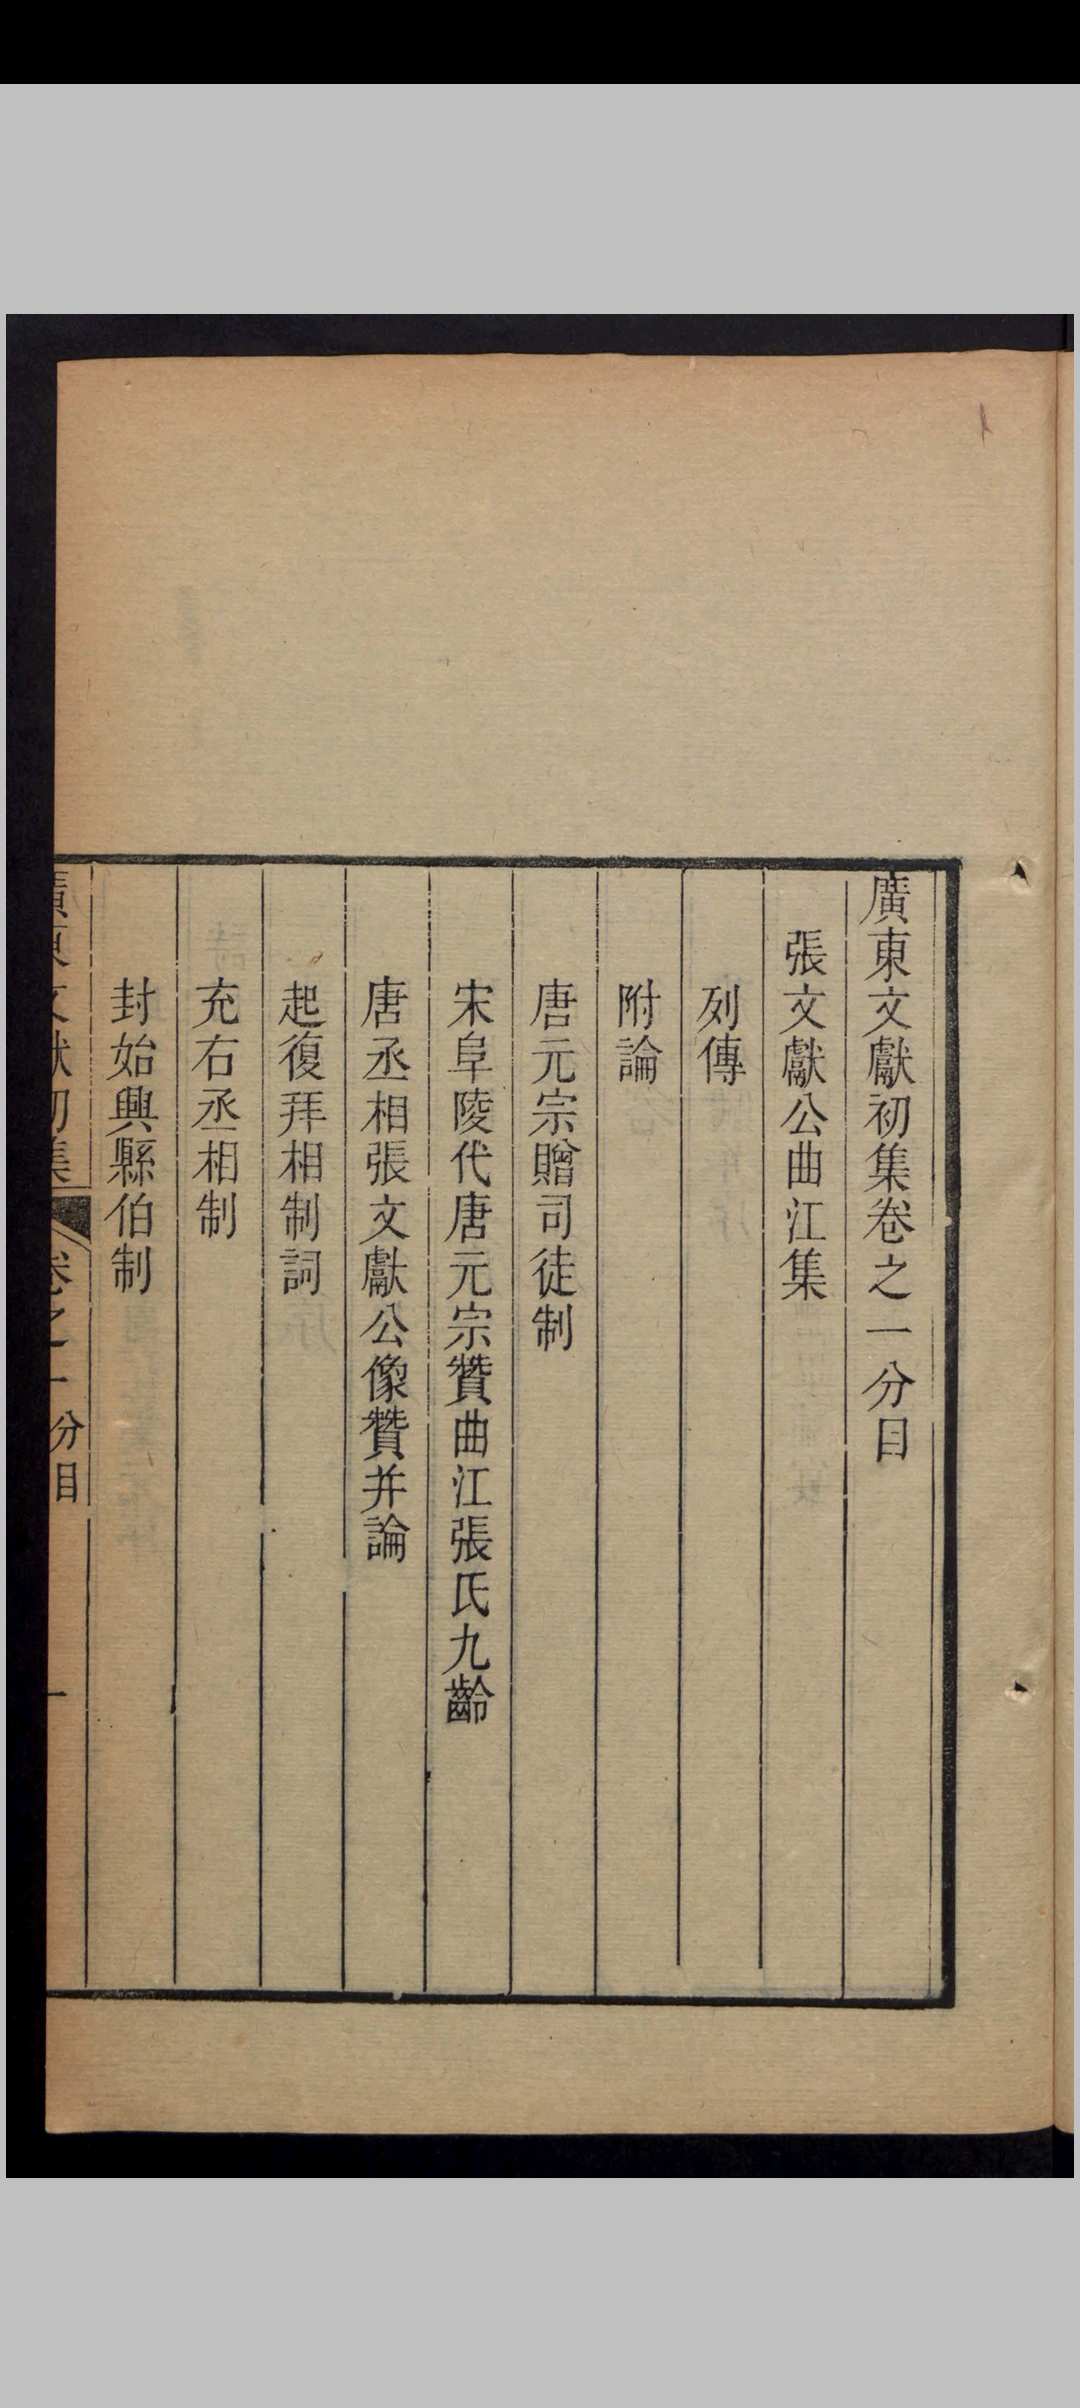 廣東文獻初集卷之一分目
張文獻公曲江集
列傳
附論
唐元宗贈司徒制
宋阜陵代唐元宗贊曲江張氏九齡
唐丞相張文獻公像贊并論
起復拜相制詞
充右丞相制
封始興縣伯制
廣東文獻初集 卷之一 分目 一